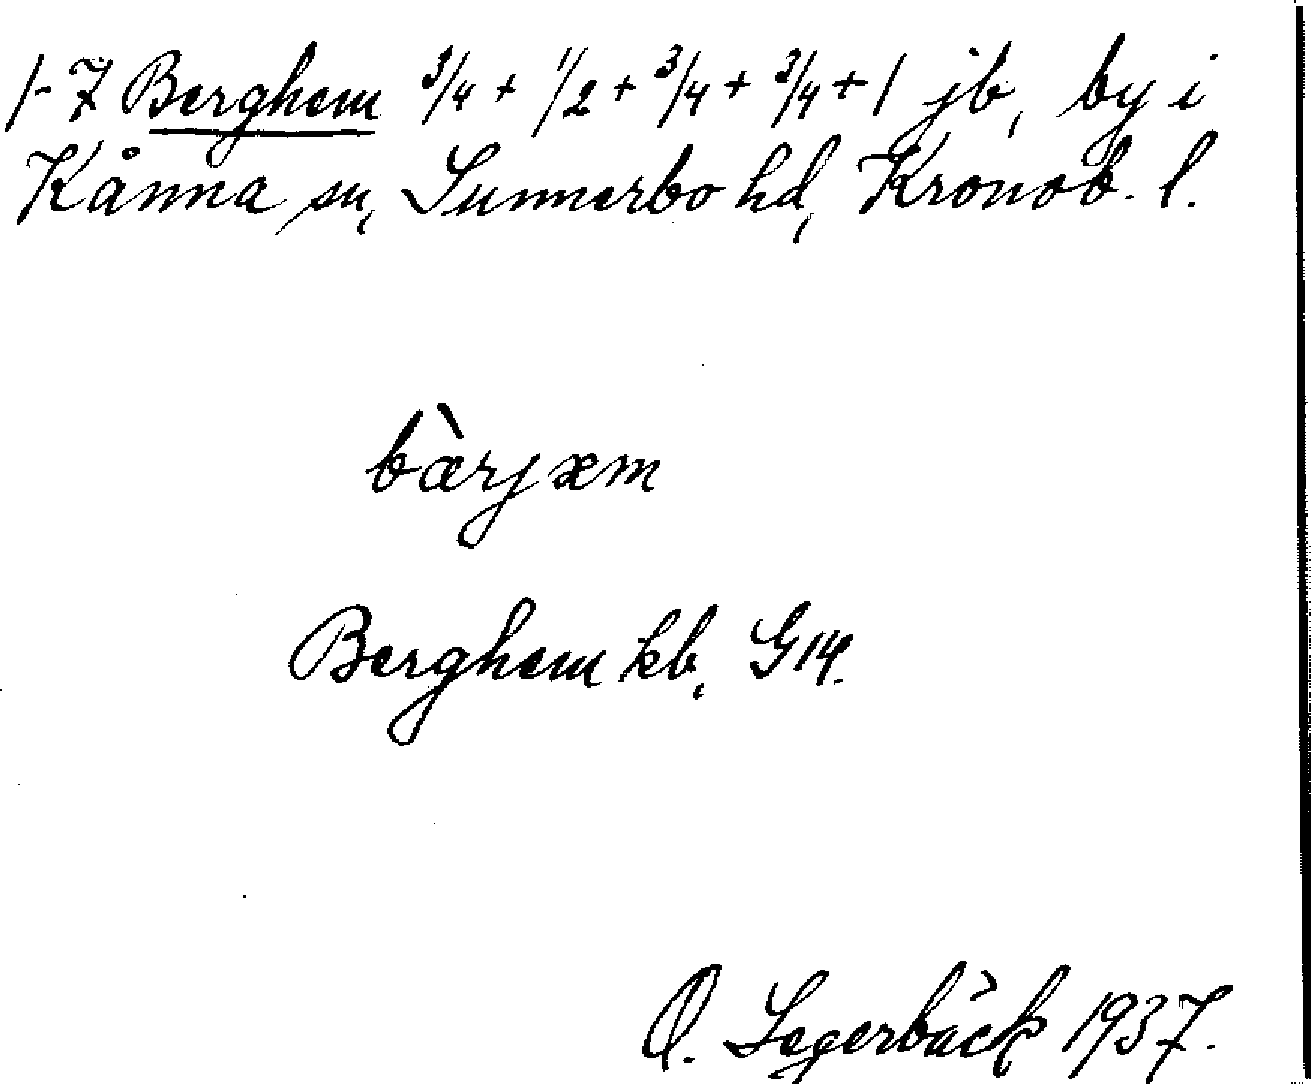 1-7 Berghem 3/4 + 1/2 + 3/4 + 3/4 + 1 jb, by i
Kånna sn, Sunnerbo hd, Kronob. l.
bàrjæm
Berghem kb, G14.
O. Segerbäck 1937.